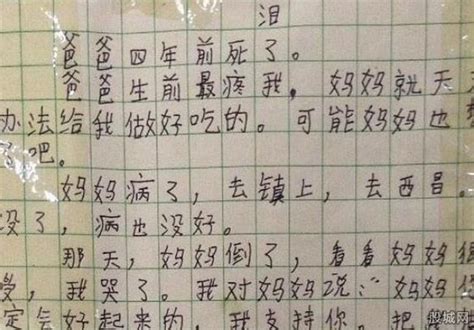 泪
爸爸四年前死了。
爸爸生前最疼我，妈妈就天
办法给我做好吃的。可能妈妈也
吧。
妈妈病了，去镇上，去西昌。
没了，病也没好。
那天，妈妈倒了，看看妈妈很
我哭了。我对妈妈说：妈妈
定会好起来的，我支持你。把
投城网